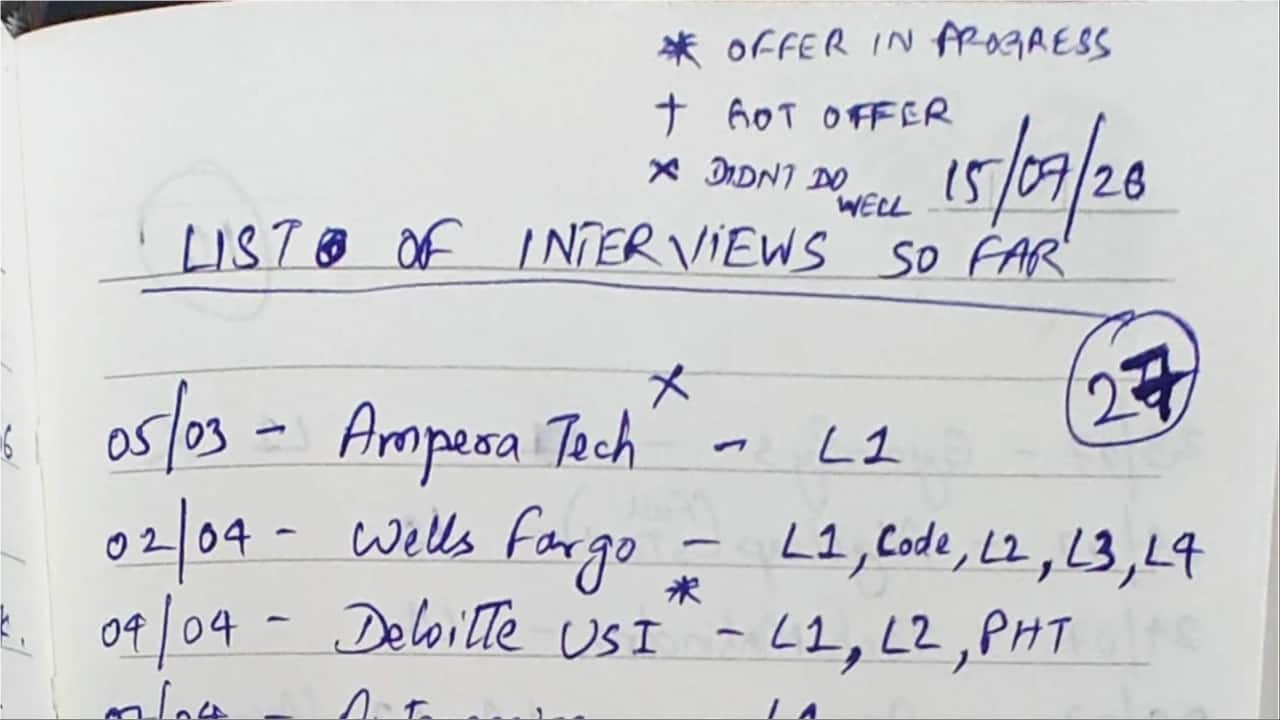 * OFFER IN PROGRESS
† GOT OFFER
× DIDNT DO WELL
15/07/26
LIST OF INTERVIEWS SO FAR
27
05/03 - Ampera Tech × - L1
02/04 - Wells Fargo - L1, Code, L2, L3, L4
04/04 - Deloitte USI * - L1, L2, PHT